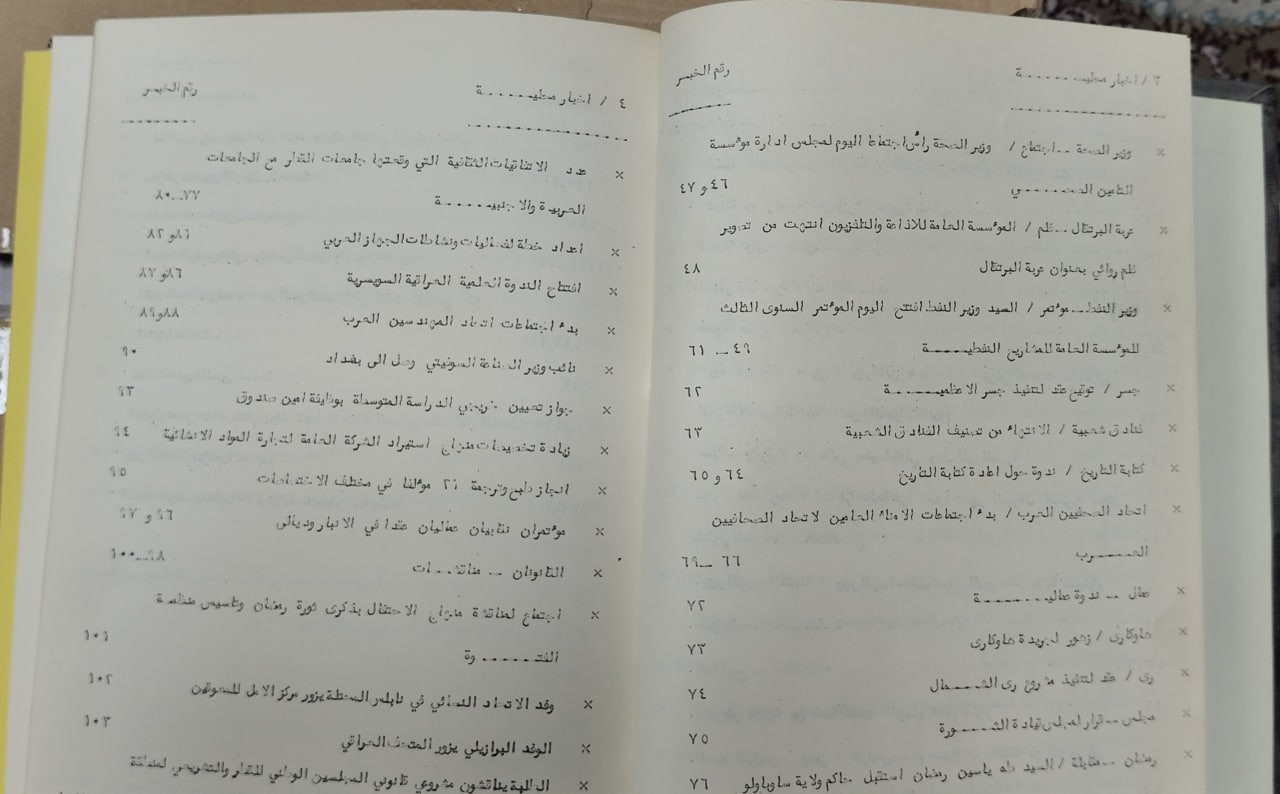 ٣ / اخبار محليــــــة
رقم الخبــر
× وزير الصحة ــ اجتماع / وزير الصحة رأس اجتماعا اليوم لمجلس ادارة مؤسسة
التامين الصحــــــي ٤٦ و ٤٧
× عربة البرتقال ــ فلم / المؤسسة العامة للاذاعة والتلفزيون انتهت من تصوير
فلم روائي بعنوان عربة البرتقال ٤٨
× وزير النفط ــ مؤتمر / السيد وزير النفط افتتح اليوم المؤتمر السنوى الثالث
للمؤسسة العامة للمشاريع النفطيــــــة ٤٩ ــ ٦١
× جسر / توقيع عقد لتنفيذ جسر الاعظميــــــة ٦٢
× فنادق شعبية / الانتهاء من تصنيف الفنادق الشعبية ٦٣
× كتابة التاريخ / ندوة حول اعادة كتابة التاريخ ٦٤ و ٦٥
× اتحاد الصحفيين العرب / بدء اجتماعات الامناء العامين لاتحاد الصحافيين
العــــــرب ٦٦ ــ ٦٩
× عمال ــ ندوة عماليــــــة ٧٢
× هاوكارى / زهور لجريدة هاوكارى ٧٣
× رى / عقد لتنفيذ مشروع رى الشــــــمال ٧٤
× مجلس ــ قرار لمجلس قيادة الثــــــورة ٧٥
× رمضان ــ مقابلة / السيد طه ياسين رمضان استقبل حاكم ولاية ساوباولو ٧٦
٤ / اخبار محليــــــة
رقم الخبــر
× عدد الاتفاقيات الثنائية التي وقعتها جامعات القطر مع الجامعات
العربية والاجنبيــــــة ٧٧ــ٨٠
× اعداد خطة لفعاليات ونشاطات الجهاز الحزبي ٨١و٨٢
× افتتاح الندوة العلمية العراقية السويسرية ٨٦و ٨٧
× بدء اجتماعات اتحاد المهندسين العرب ٨٨و٨٩
× نائب وزير الصناعة السوفيتي وصل الى بغداد ٩٠
× جواز تعيين خريجي الدراسة المتوسطة بوظيفة امين صندوق ٩٣
× زيادة تخصيصات منهاج استيراد الشركة العامة لتجارة المواد الانشائية ٩٤
× انجاز طبع وترجمة ٢١ مؤلفا في مختلف الاختصاصات ٩٥
× مؤتمران نقابيان عماليان عقدا في الانبار وديالى ٩٦ و ٩٧
× القانونان ــ مناقشــــات ٩٨ــ١٠٠
× اجتماع لمناقشة منهاج الاحتفال بذكرى ثورة رمضان وتاسيس منظمة
الفتــــــوة ١٠١
× وفد الاتحاد النسائي في نابلس المحتلة يزور مركز الامل للمعوقين ١٠٢
× الوفد البرازيلي يزور المتحف العراقي ١٠٣
× الطلبة يناقشون مشروعي قانوني المجلسين الوطني للقطر والتشريعي لمنطقة